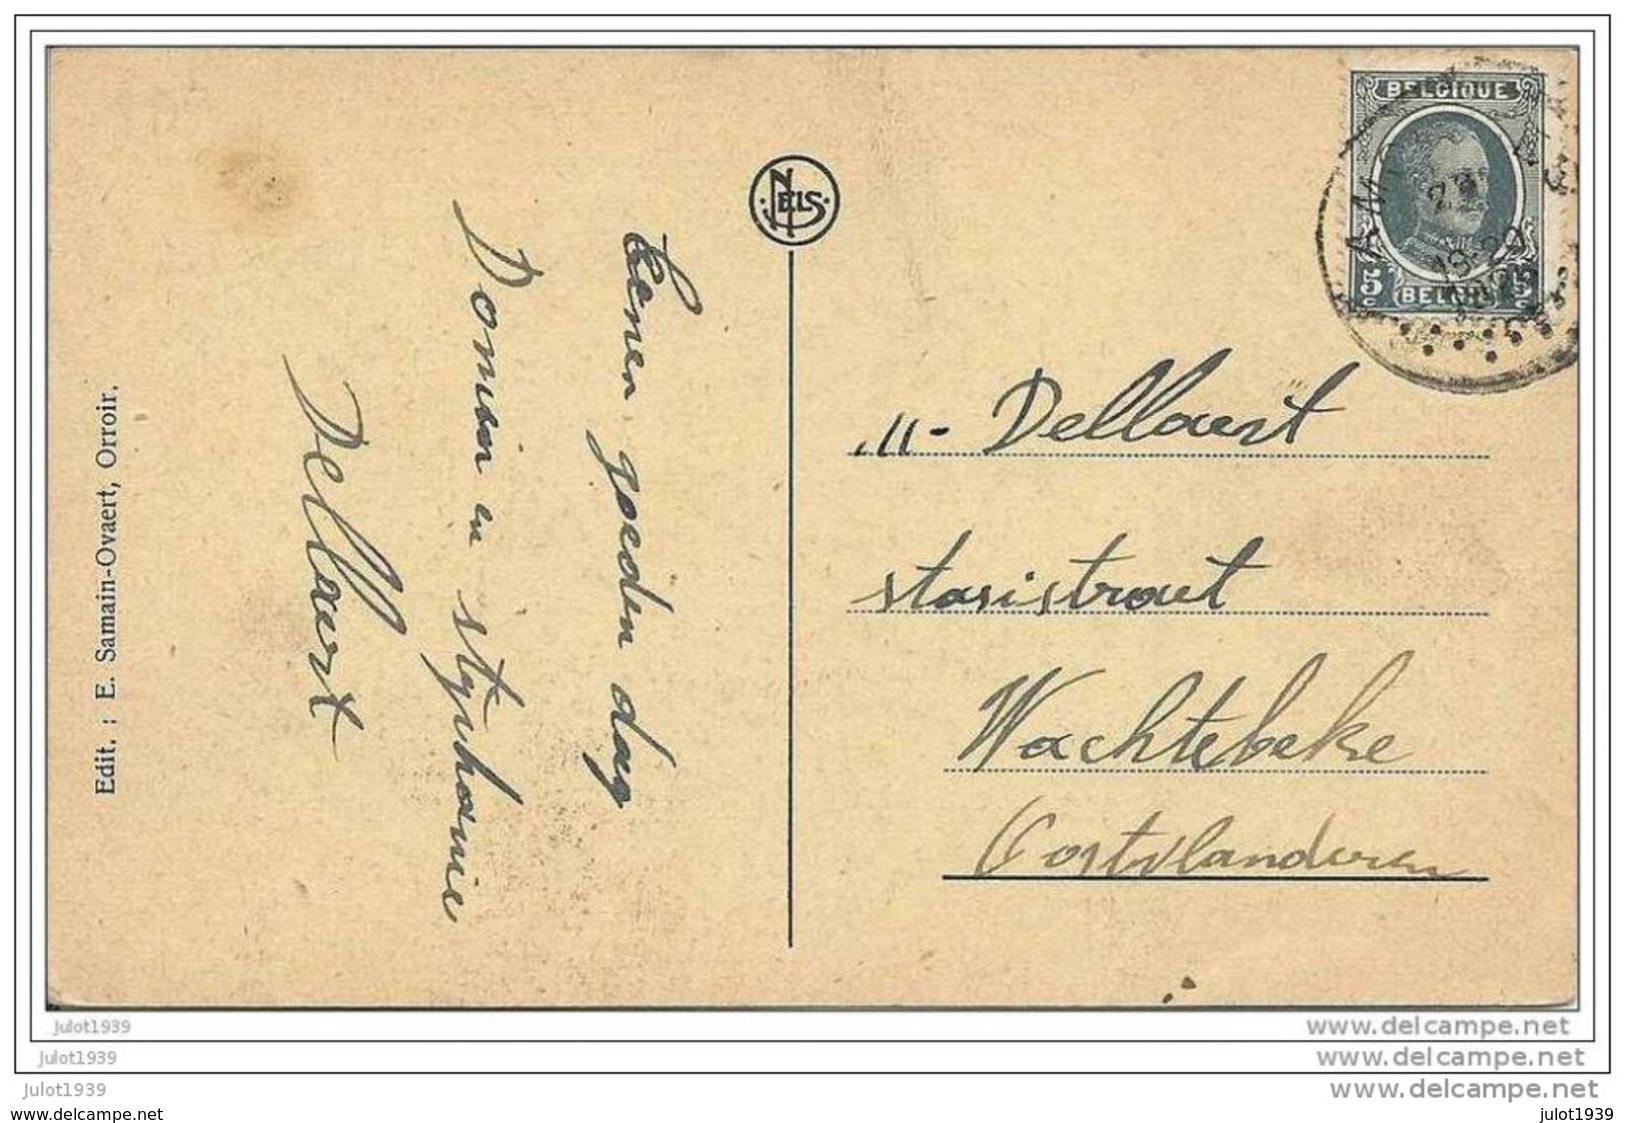 Edit. : E. Samain-Ovaert, Orroir.
Eenen goeden dag
en styphanie
Dellaert
NELS
BELGIQUE
5c BELGIË 5c
M- Dellaert
statistraat
Wachtebeke
Oostvlanderen
Julot1939
www.delcampe.net
Julot1939
www.delcampe.net
Julot1939
www.delcampe.net
www.delcampe.net
julot1939